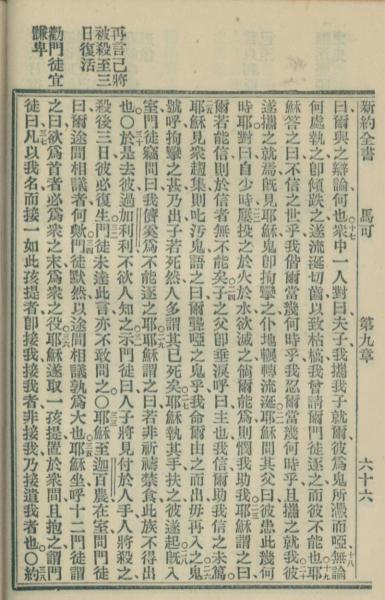 新約全書　馬可　第九章　六十六
曰爾與之辯論何也衆中一人對曰夫子我攜我子就爾彼爲鬼所憑而啞無論
何處執之卽傾跌之遂流涎切齒以致枯槁我曾請爾門徒逐之而彼不能也耶
穌答之曰不信之世乎我偕爾當幾何時乎我忍爾當幾何時乎且攜之就我彼
遂攜之就焉旣見耶穌鬼卽拘攣之仆地輾轉流涎耶穌問其父曰彼患此幾何
時耶對曰自少時屢投之於火於水欲滅之倘爾能爲則憫我助我耶穌謂之曰
爾若能信則於信者無不能矣子之父卽垂淚呼曰主也我信爾助我信之未篤
耶穌見衆趨集則叱汚鬼語之曰聾啞之鬼乎我命爾由之而出毋再入之鬼
號呼拘攣之甚乃出子若死然人多謂其已死矣耶穌執其手扶之彼遂起旣入
室門徒竊問曰我儕奚爲不能逐之耶耶穌謂之曰若非祈禱禁食此族不得出
也○於是去彼過加利利不欲人知之示門徒曰人子將見付於人手人將殺之
殺後三日彼必復生門徒未達此言亦不敢問之○耶穌至迦百農在室問門徒
曰爾途間相議者何歟門徒默然以途間相議孰爲大也耶穌坐呼十二門徒謂
之曰欲爲首者必爲衆之末爲衆之役耶穌遂取一孩提置於衆間且抱之謂門
徒曰凡以我名而接一如此孩提者卽接我接我者非接我乃接遣我者也○約
再言己將
被殺至三
日復活
勸門徒宜
謙卑